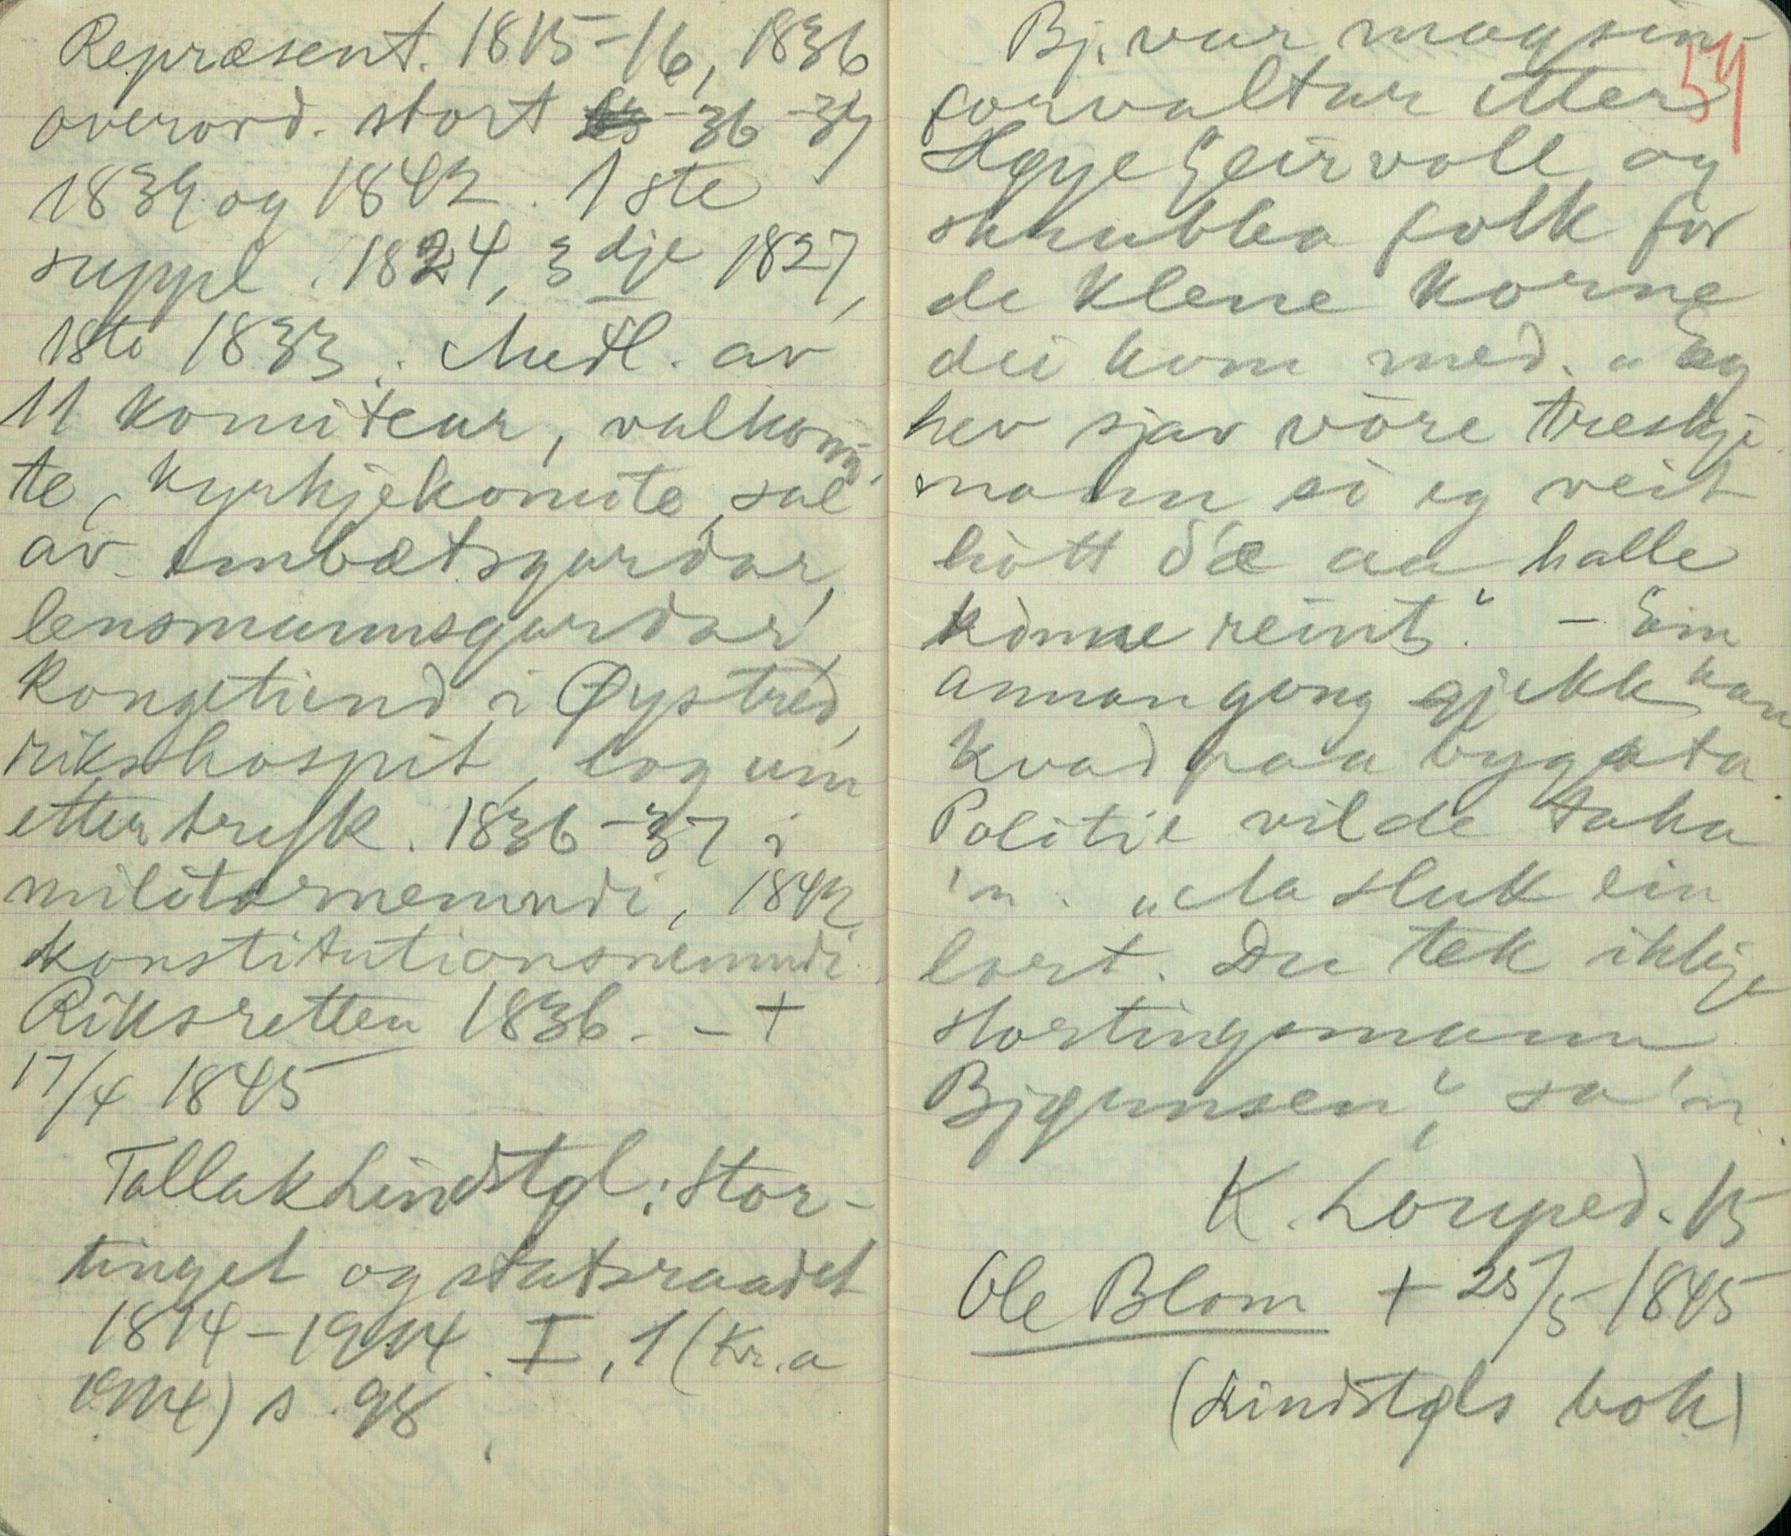 Repræsent. 1815-16, 1836
overord. stort -36 -37
1839 og 1842. 1ste
suppl. 1824, 3dje 1827,
1ste 1833. Medl. av
11 komitear, valkomi-
te, kyrkjekomite, sal
av embætsgardar,
lensmannsgardar,
kongetiend i Øystred,
rikshospit, log um
ettertrykk. 1836-37 i
militærnemndi, 1842
konstitutionsnemndi.
Riksretten 1836. - +
17/4 1845
Tallak Lindstøl: Stor-
tinget og statsraadet
1814-1914. I, 1 (Kr.a
1914) s. 98
59
Bj. var magsin-
forvaltar etter
Høye Geirvoll og
skrubba folk for
de klene korne
dei kom med. "Eg
hev sjav vöre treskje-
mann so eg veit
hott d'æ aa halle
kònne reint." - Ein
annan gong gjekk han
kvad paa bygata.
Politie vilde taka
'n. "Aa sluk ein
lort. Du tek ikkje
stortingsmann
Bjørnsen", sa 'n.
K. Louped. 15
Ole Blom + 25/5 1845
(Lindstøls bok)